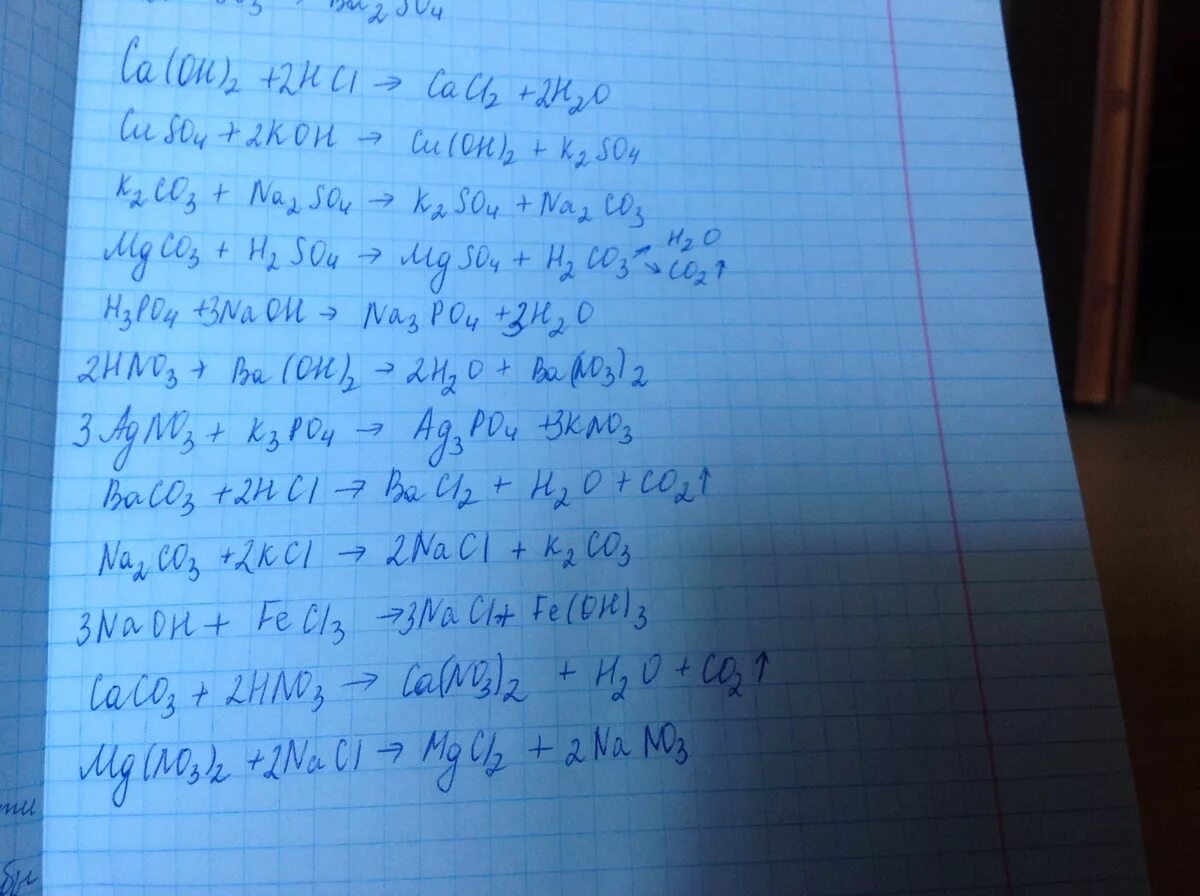 Ba₂SO₄
Ca(OH)₂ +2HCl → CaCl₂ +2H₂O
CuSO₄ + 2KOH → Cu(OH)₂ + K₂SO₄
K₂CO₃ + Na₂SO₄ → K₂SO₄ + Na₂CO₃
MgCO₃ + H₂SO₄ → MgSO₄ + H₂CO₃ ↗ H₂O ↘ CO₂↑
H₃PO₄ +3NaOH → Na₃PO₄ +3H₂O
2HNO₃ + Ba(OH)₂ → 2H₂O + Ba(NO₃)₂
3AgNO₃ + K₃PO₄ → Ag₃PO₄ +3KNO₃
BaCO₃ +2HCl → BaCl₂ + H₂O + CO₂↑
Na₂CO₃ +2KCl → 2NaCl + K₂CO₃
3NaOH + FeCl₃ → 3NaCl + Fe(OH)₃
CaCO₃ + 2HNO₃ → Ca(NO₃)₂ + H₂O + CO₂↑
Mg(NO₃)₂ +2NaCl → MgCl₂ + 2NaNO₃
ти
бы